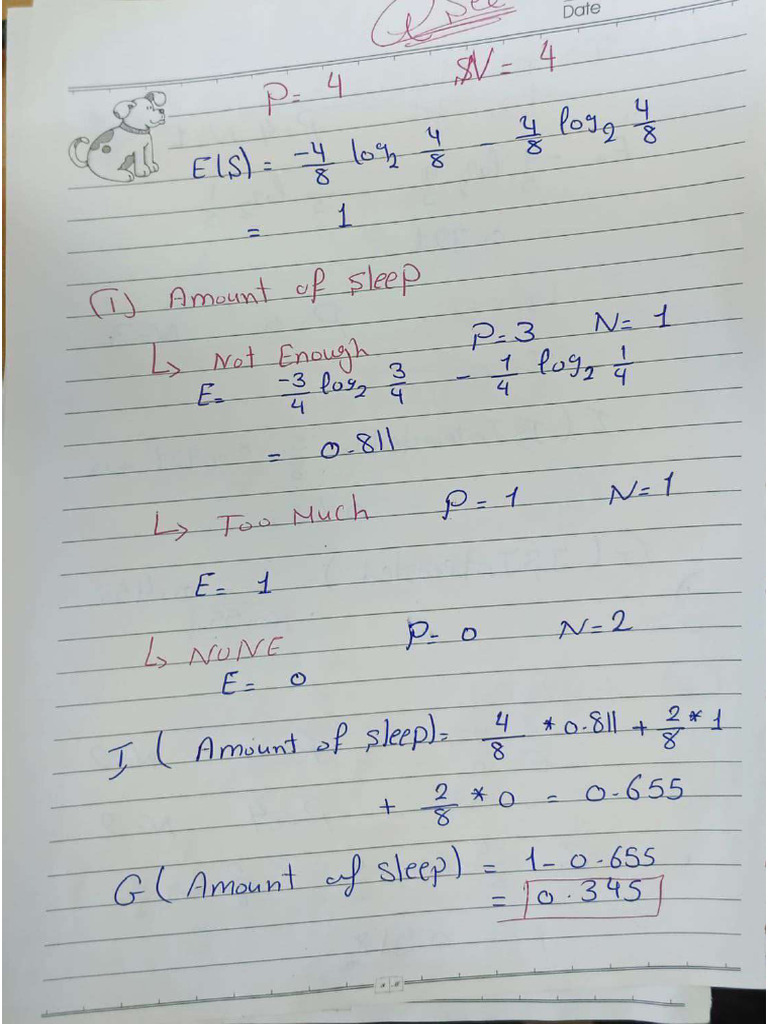 Date
P = 4 N = 4
E(S) = -4/8 log2 4/8 - 4/8 log2 4/8
= 1
(1) Amount of sleep
↳ Not Enough P=3 N=1
E= -3/4 log2 3/4 - 1/4 log2 1/4
= 0.811
↳ Too Much P=1 N=1
E= 1
↳ NONE P=0 N=2
E= 0
I (Amount of sleep)= 4/8 *0.811 + 2/8 *1
+ 2/8 *0 = 0.655
G (Amount of sleep) = 1-0.655
= 0.345